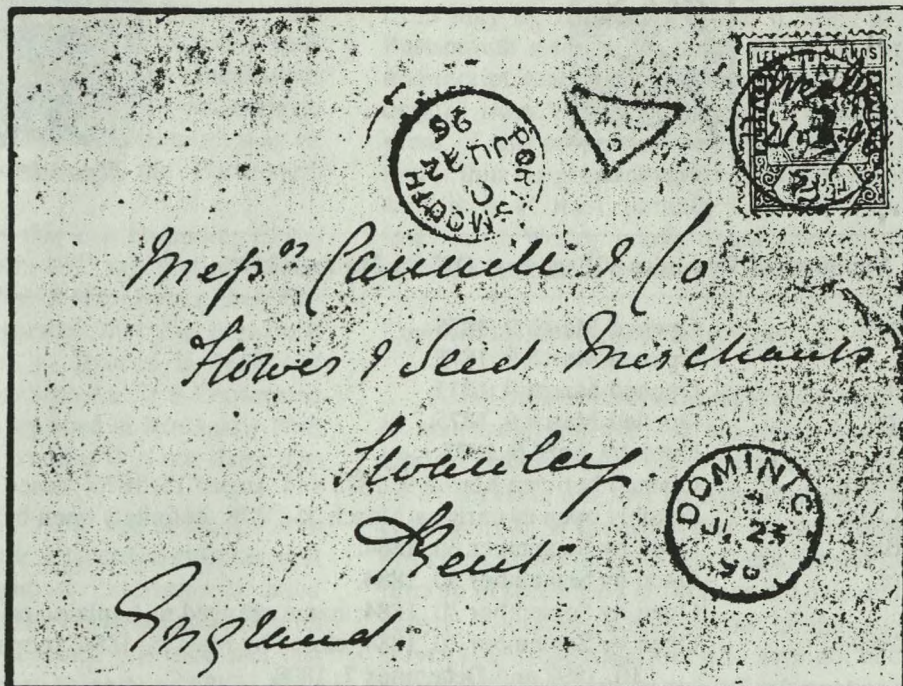 LEEWARD ISLANDS
PORTSMOUTH
C
JUL 22
96
Messrs Cannell & Co
Flower & Seed Merchants
Swanley.
Kent
England.
DOMINIC
JL 23
96